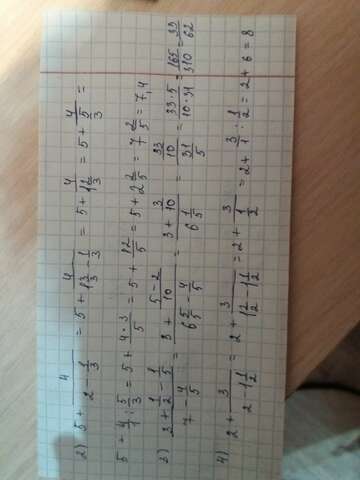 2) 5 + 4/(2 - 1/3) = 5 + 4/(1 3/3 - 1/3) = 5 + 4/(1 2/3) = 5 + 4/(5/3) =
5 + 4/1 : 5/3 = 5 + (4 · 3)/5 = 5 + 12/5 = 5 + 2 2/5 = 7 2/5 = 7,4
3) (3 + 1/2 - 1/5)/(7 - 4/5) = (3 + (5 - 2)/10)/(6 5/5 - 4/5) = (3 + 3/10)/(6 1/5) = (33/10)/(31/5) = (33 · 5)/(10 · 31) = 165/310 = 33/62
4) 2 + 3/(2 - 1 1/2) = 2 + 3/(1 2/2 - 1 1/2) = 2 + 3/(1/2) = 2 + 3/1 : 1/2 = 2 + 6 = 8